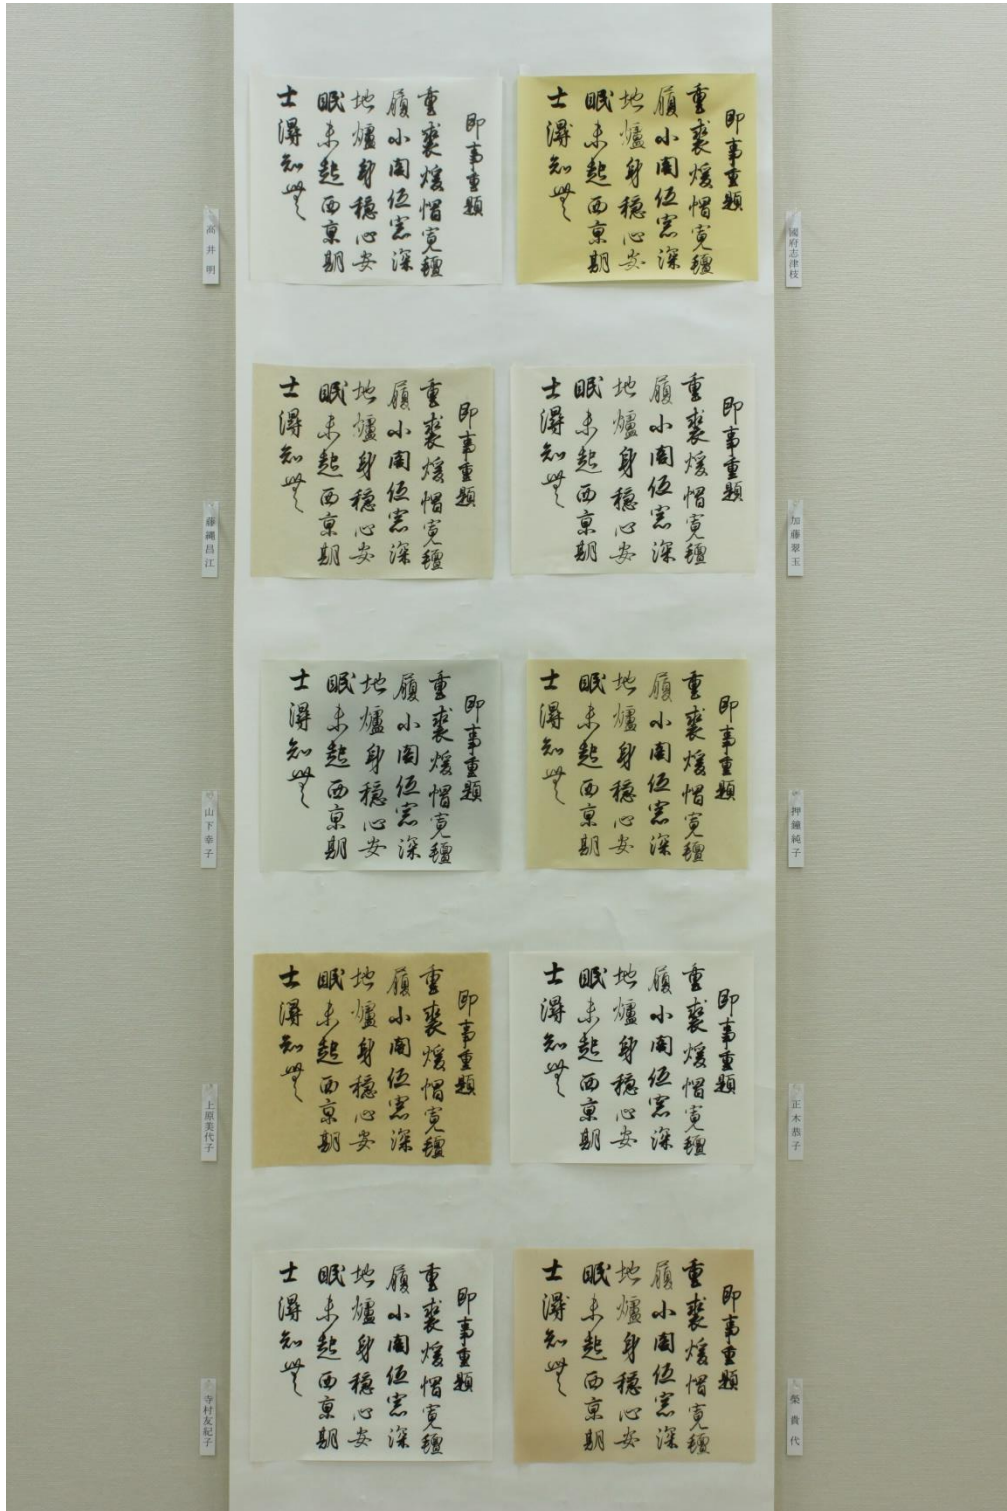 國府志津枝
即事重題
重裘煖帽寛氈
履小閣低窓深
地爐身穏心安
眠未起西京朝
士得知無
即事重題
重裘煖帽寛氈
履小閣低窓深
地爐身穏心安
眠未起西京朝
士得知無
高井明
加藤翠玉
即事重題
重裘煖帽寛氈
履小閣低窓深
地爐身穏心安
眠未起西京朝
士得知無
即事重題
重裘煖帽寛氈
履小閣低窓深
地爐身穏心安
眠未起西京朝
士得知無
藤縄昌江
押鐘純子
即事重題
重裘煖帽寛氈
履小閣低窓深
地爐身穏心安
眠未起西京朝
士得知無
即事重題
重裘煖帽寛氈
履小閣低窓深
地爐身穏心安
眠未起西京朝
士得知無
山下幸子
正木恭子
即事重題
重裘煖帽寛氈
履小閣低窓深
地爐身穏心安
眠未起西京朝
士得知無
即事重題
重裘煖帽寛氈
履小閣低窓深
地爐身穏心安
眠未起西京朝
士得知無
上原美代子
榮貴代
即事重題
重裘煖帽寛氈
履小閣低窓深
地爐身穏心安
眠未起西京朝
士得知無
即事重題
重裘煖帽寛氈
履小閣低窓深
地爐身穏心安
眠未起西京朝
士得知無
寺村友紀子